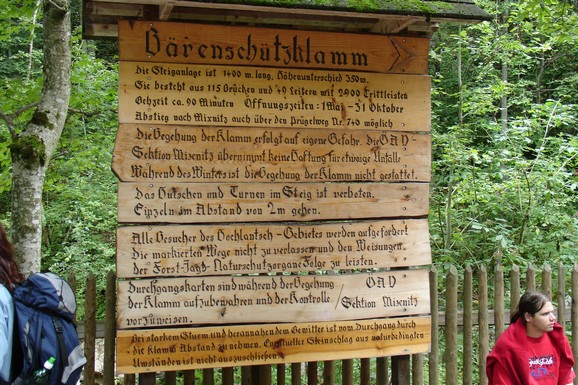 Bärenschützklamm
Die Steiganlage ist 1400 m. lang, Höhenunterschied 350m.
Sie besteht aus 115 Brücken und 49 Leitern mit 2900 Trittleisten
Gehzeit ca. 90 Minuten Öffnungszeiten: 1 Mai - 31 Oktober
Abstieg nach Mixnitz auch über den Prügelweg Nr. 740 möglich
Die Begehung der Klamm erfolgt auf eigene Gefahr. Die ÖAV -
Sektion Mixnitz übernimmt keine Haftung für etwaige Unfälle
Während des Winters ist die Begehung der Klamm nicht gestattet.
Das Hutschen und Turnen im Steig ist verboten.
Einzeln im Abstand von 2m gehen.
Alle Besucher des Hochlantsch - Gebietes werden aufgefordert
Die markierten Wege nicht zu verlassen und den Weisungen
der Forst-Jagd-Naturschutzorgane Folge zu leisten.
Durchgangskarten sind während der Begehung
der Klamm aufzubewahren und der Kontrolle / ÖAV Sektion Mixnitz
vorzuweisen.
Bei starkem Sturm und herannahendem Gewitter ist vom Durchgang durch
die Klamm Abstand zu nehmen. Eventueller Steinschlag aus naturbedingten
Umständen ist nicht auszuschließen